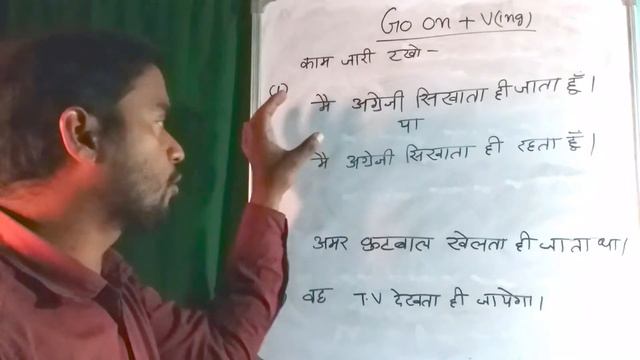 Go on + V(ing)
काम जारी रखो -
(1) मै अग्रेजी सिखाता ही जाता हूँ।
या
मै अग्रेजी सिखाता ही रहता हूँ।
अमर फुटबाल खेलता ही जाता था।
) वह T.V देखता ही जायेगा।